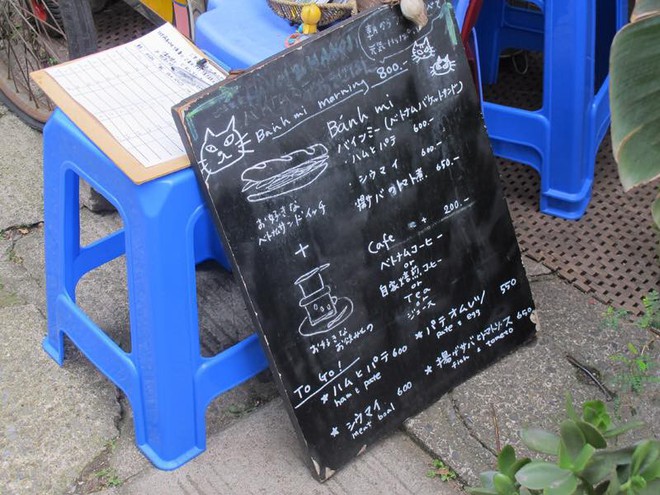 Bánh mi morning 800.-
Bánh mi
バインミー(ベトナムバゲットサンド)
・ハムとパテ 600.-
・シウマイ 600.-
揚サバのトマト煮. 650.-
お好きな
ベトナムサンドイッチ
+
お好きな
お飲みもの
Cafe + 200.-
ベトナムコーヒー
or
自家焙煎コーヒー
or
Tea
or
ジュース
TO GO!
★ ハムとパテ 600
ham & pate
★ シウマイ 600
meat boal
★ パテオムレツ 550
pate & egg
★ 揚げサバとトマトソース 650
fish & tomato